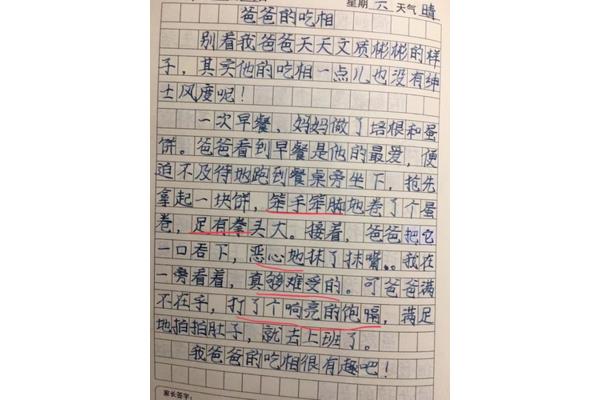 星期 六 天气 晴
爸爸的吃相
别看我爸爸天天文质彬彬的样
子，其实他的吃相一点儿也没有绅
士风度呢！
一次早餐、妈妈做了培根和蛋
饼。爸爸看到早餐是他的最爱，便
迫不及待地跑到餐桌旁坐下，抢先
拿起一块饼，笨手笨脑地卷了个蛋
卷，足有拳头大。接着，爸爸把它
一口吞下，恶心地抹了抹嘴。我在
一旁看着，真够难受的。可爸爸满
不在乎，打了个响亮的饱嗝，满足
地拍拍肚子，就去上班了。
我爸爸的吃相很有趣吧！
家长签字：